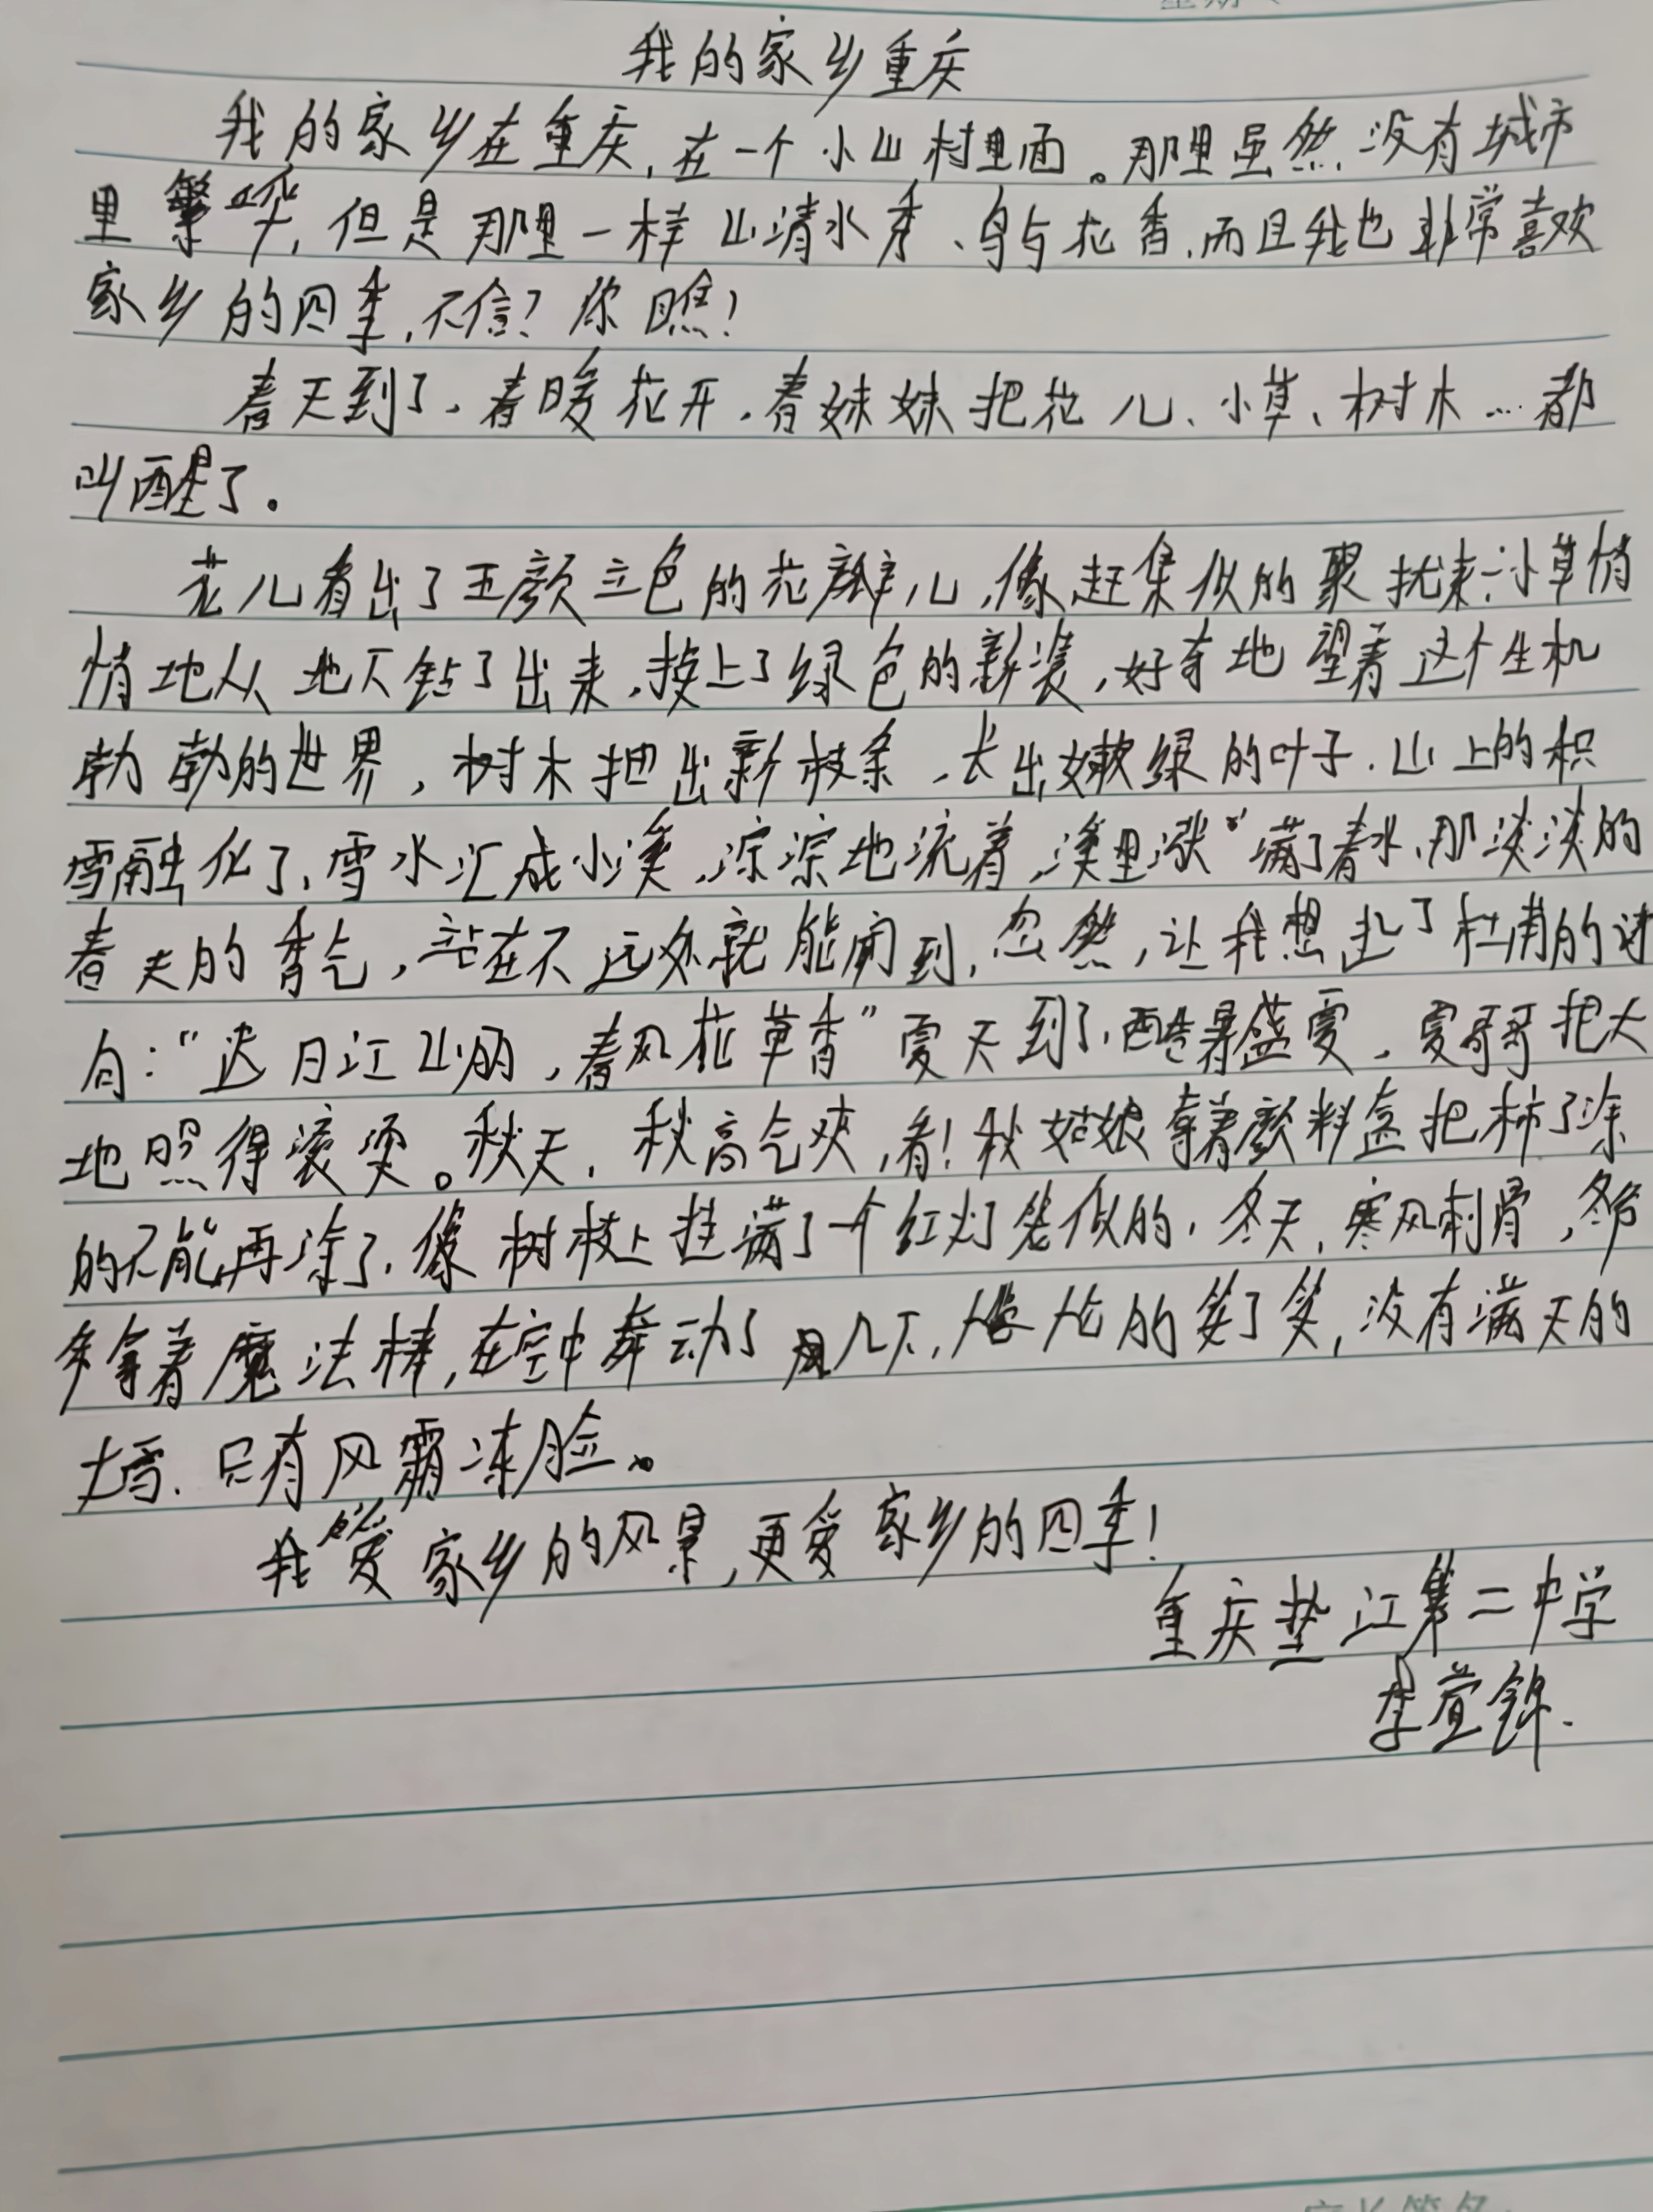 我的家乡重庆
我的家乡在重庆,在一个小山村里面。那里虽然没有城市
里繁华,但是那里一样山清水秀、鸟与花香,而且我也非常喜欢
家乡的四季,不信?你瞧!
春天到了,春暖花开,春妹妹把花儿、小草、树木…都
叫醒了。
花儿看出了五颜立色的花瓣儿,像赶集似的聚扰来;小草悄
悄地从地下钻了出来,披上了绿色的新装,好奇地望着这个生机
勃勃的世界,树木把出新枝条,长出嫩绿的叶子.山上的积
雪融化了,雪水汇成小溪,淙淙地流着,溪里涨满了春水,那淡淡的
春天的香气,站在不远处就能闻到,忽然,让我想起了杜甫的诗
句:“迟日江山丽,春风花草香”夏天到了,酷暑盛夏,夏哥哥把大
地照得滚烫。秋天,秋高气爽,看!秋姑娘拿着颜料盒把柿了涂
的不能再涂了,像树枝上挂满了一个红灯笼似的,冬天,寒风刺骨,冬爷
爷拿着魔法棒,在空中舞动了几下,的笑了笑,没有满天的
大雪,只有风霜冻脸。
我爱家乡的风景,更爱家乡的四季!
重庆垫江第二中学
李萱锦.